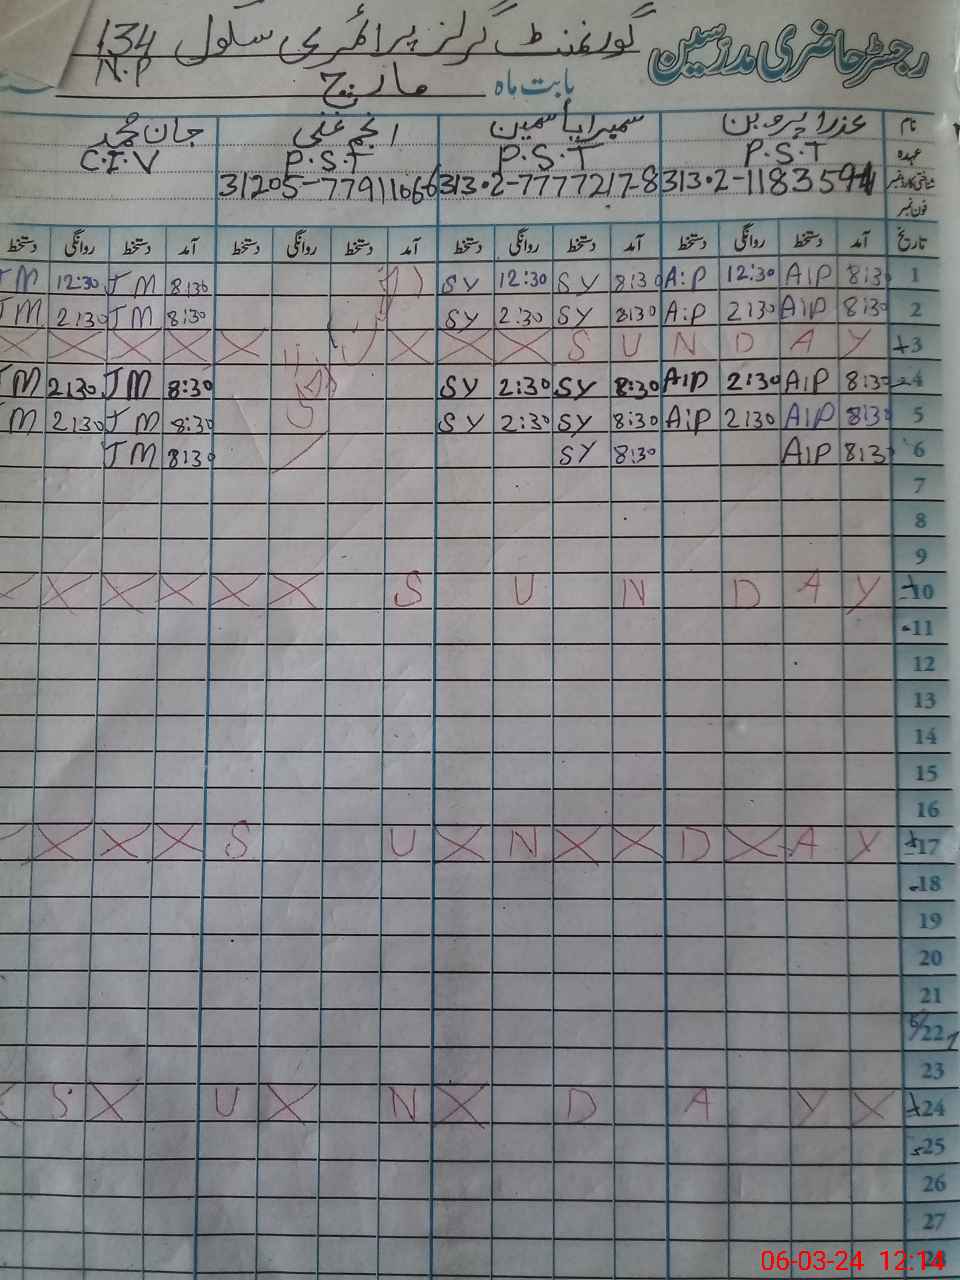 رجسٹر حاضری مدرسین گورنمنٹ گرلز پرائمری سکول 134 N.P
بابت ماہ مارچ
نام عذرا پروین سمیرا یاسمین انجم غنی جان محمد
عہدہ P.S.T P.S.T P.S.T C.I.V
شناختی کارڈ نمبر
فون نمبر
تاریخ آمد دستخط روانگی دستخط آمد دستخط روانگی دستخط آمد دستخط روانگی دستخط آمد دستخط روانگی دستخط
1 8:30 A:P 12:30 A:P 8:30 SY 12:30 SY 8:30 JM 12:30 JM
2 8:30 A:P 2:30 A:P 8:30 SY 2:30 SY 8:30 JM 2:30 JM
3 Y A D N U S X X X X X X X X
4 8:30 A:P 2:30 A:P 8:30 SY 2:30 SY 8:30 JM 2:30 JM
5 8:30 A:P 2:30 A:P 8:30 SY 2:30 SY 8:30 JM 2:30 JM
6 8:3 A:P 8:30 SY 8:30 JM
7
8
9
10 Y A D N U S X X X X X X
11
12
13
14
15
16
17 Y A X D X X N X U S X X X X
18
19
20
21
22
23
24 X Y A D X N X U X S X
25
26
27
28
06-03-24 12:14